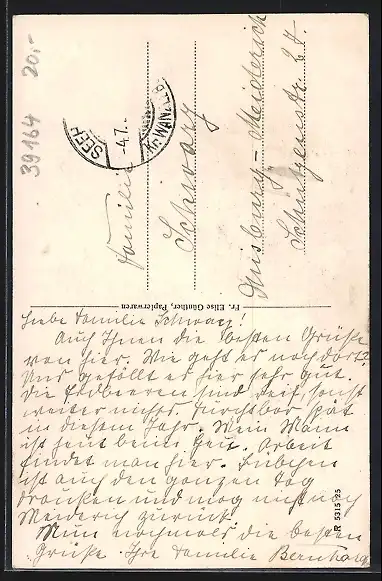 39164 20,-
SEEH
-4.7.-
Kr. WANZLEB.
Familie
Schwarz
Duisburg-Meiderich
Schützenstr. 27.
Fr. Elise Günther, Papierwaren
Liebe Familie Schwarz!
Auch Ihnen die besten Grüße
von hier. Wie geht es noch dort?
Uns gefällt es hier sehr gut.
Die Erdbeeren sind reif, sonst
weiter nichts. Furchtbar spät
in diesem Jahr. Mein Mann
ist jetzt beim Heu. Arbeit
findet man hier. Bubchen
ist auch den ganzen Tag
draußen und mag nicht nach
Meiderich zurück.
Nun nochmals die besten
Grüße. Ihre Familie Bernhard
R 5315 25